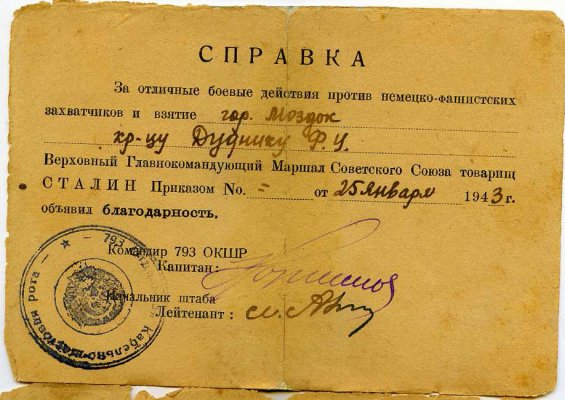 СПРАВКА
За отличные боевые действия против немецко-фашистских
захватчиков и взятие гор. Моздок
кр-цу Дуднику Ф. У.
Верховный Главнокомандующий Маршал Советского Союза товарищ
СТАЛИН Приказом No. = от 25 января 1943 г.
объявил благодарность.
Командир 793 ОКШР
Капитан:
Начальник штаба
Лейтенант:
793
кабельно-шестовая рота